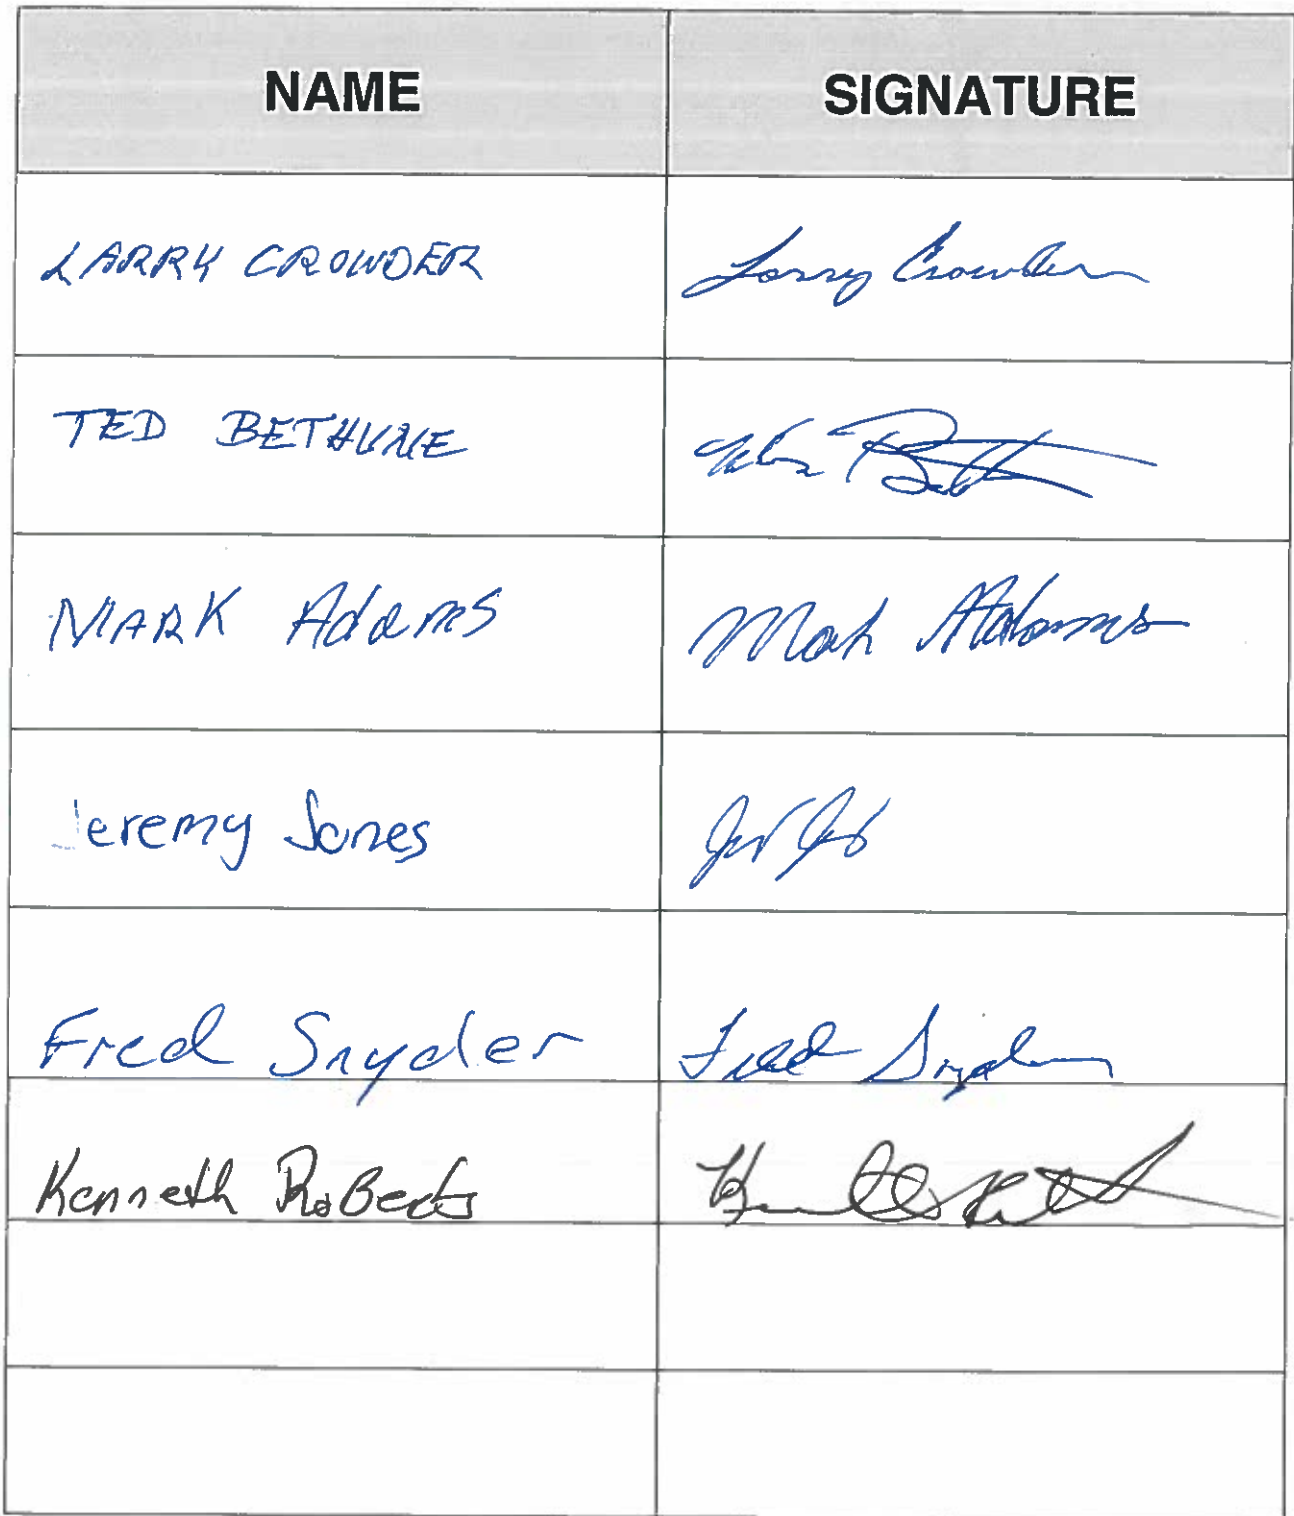 NAME SIGNATURE
LARRY CROWDER Larry Crowder
TED BETHUNE
MARK Adams Mark Adams
Jeremy Jones
Fred Snyder Fred Snyder
Kenneth RoBerts